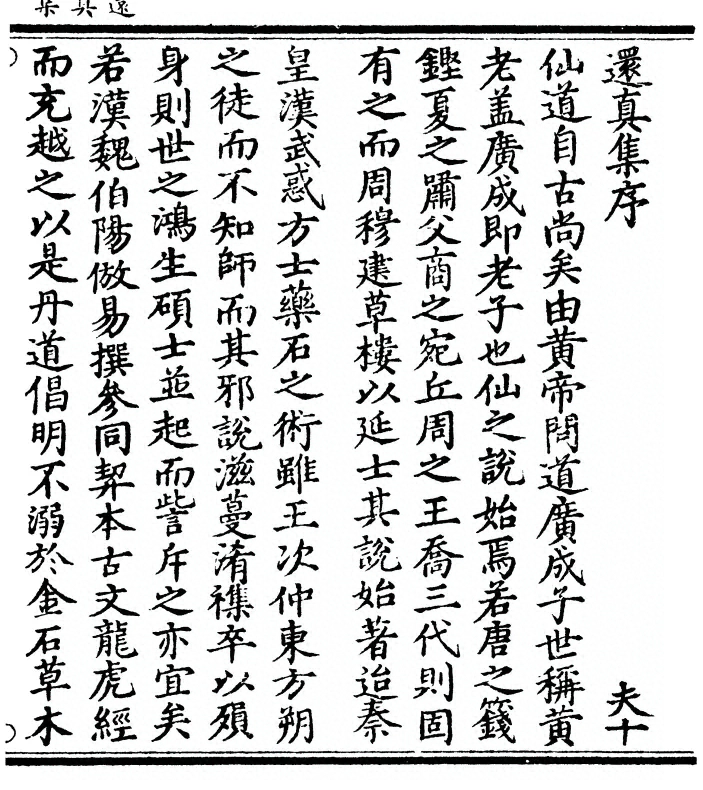 還真集序
夫十
仙道自古尚矣由黄帝問道廣成子世稱黄
老盖廣成即老子也仙之說始焉若唐之籛
鏗夏之嘯父商之宛丘周之王喬三代則固
有之而周穆建草樓以延士其說始著迨秦
皇漢武惑方士藥石之術雖王次仲東方朔
之徒而不知師而其邪說滋蔓淆襍卒以殞
身則世之鴻生碩士並起而訾斥之亦宜矣
若漢魏伯陽倣易撰參同契本古文龍虎經
而充越之以是丹道倡明不溺於金石草木